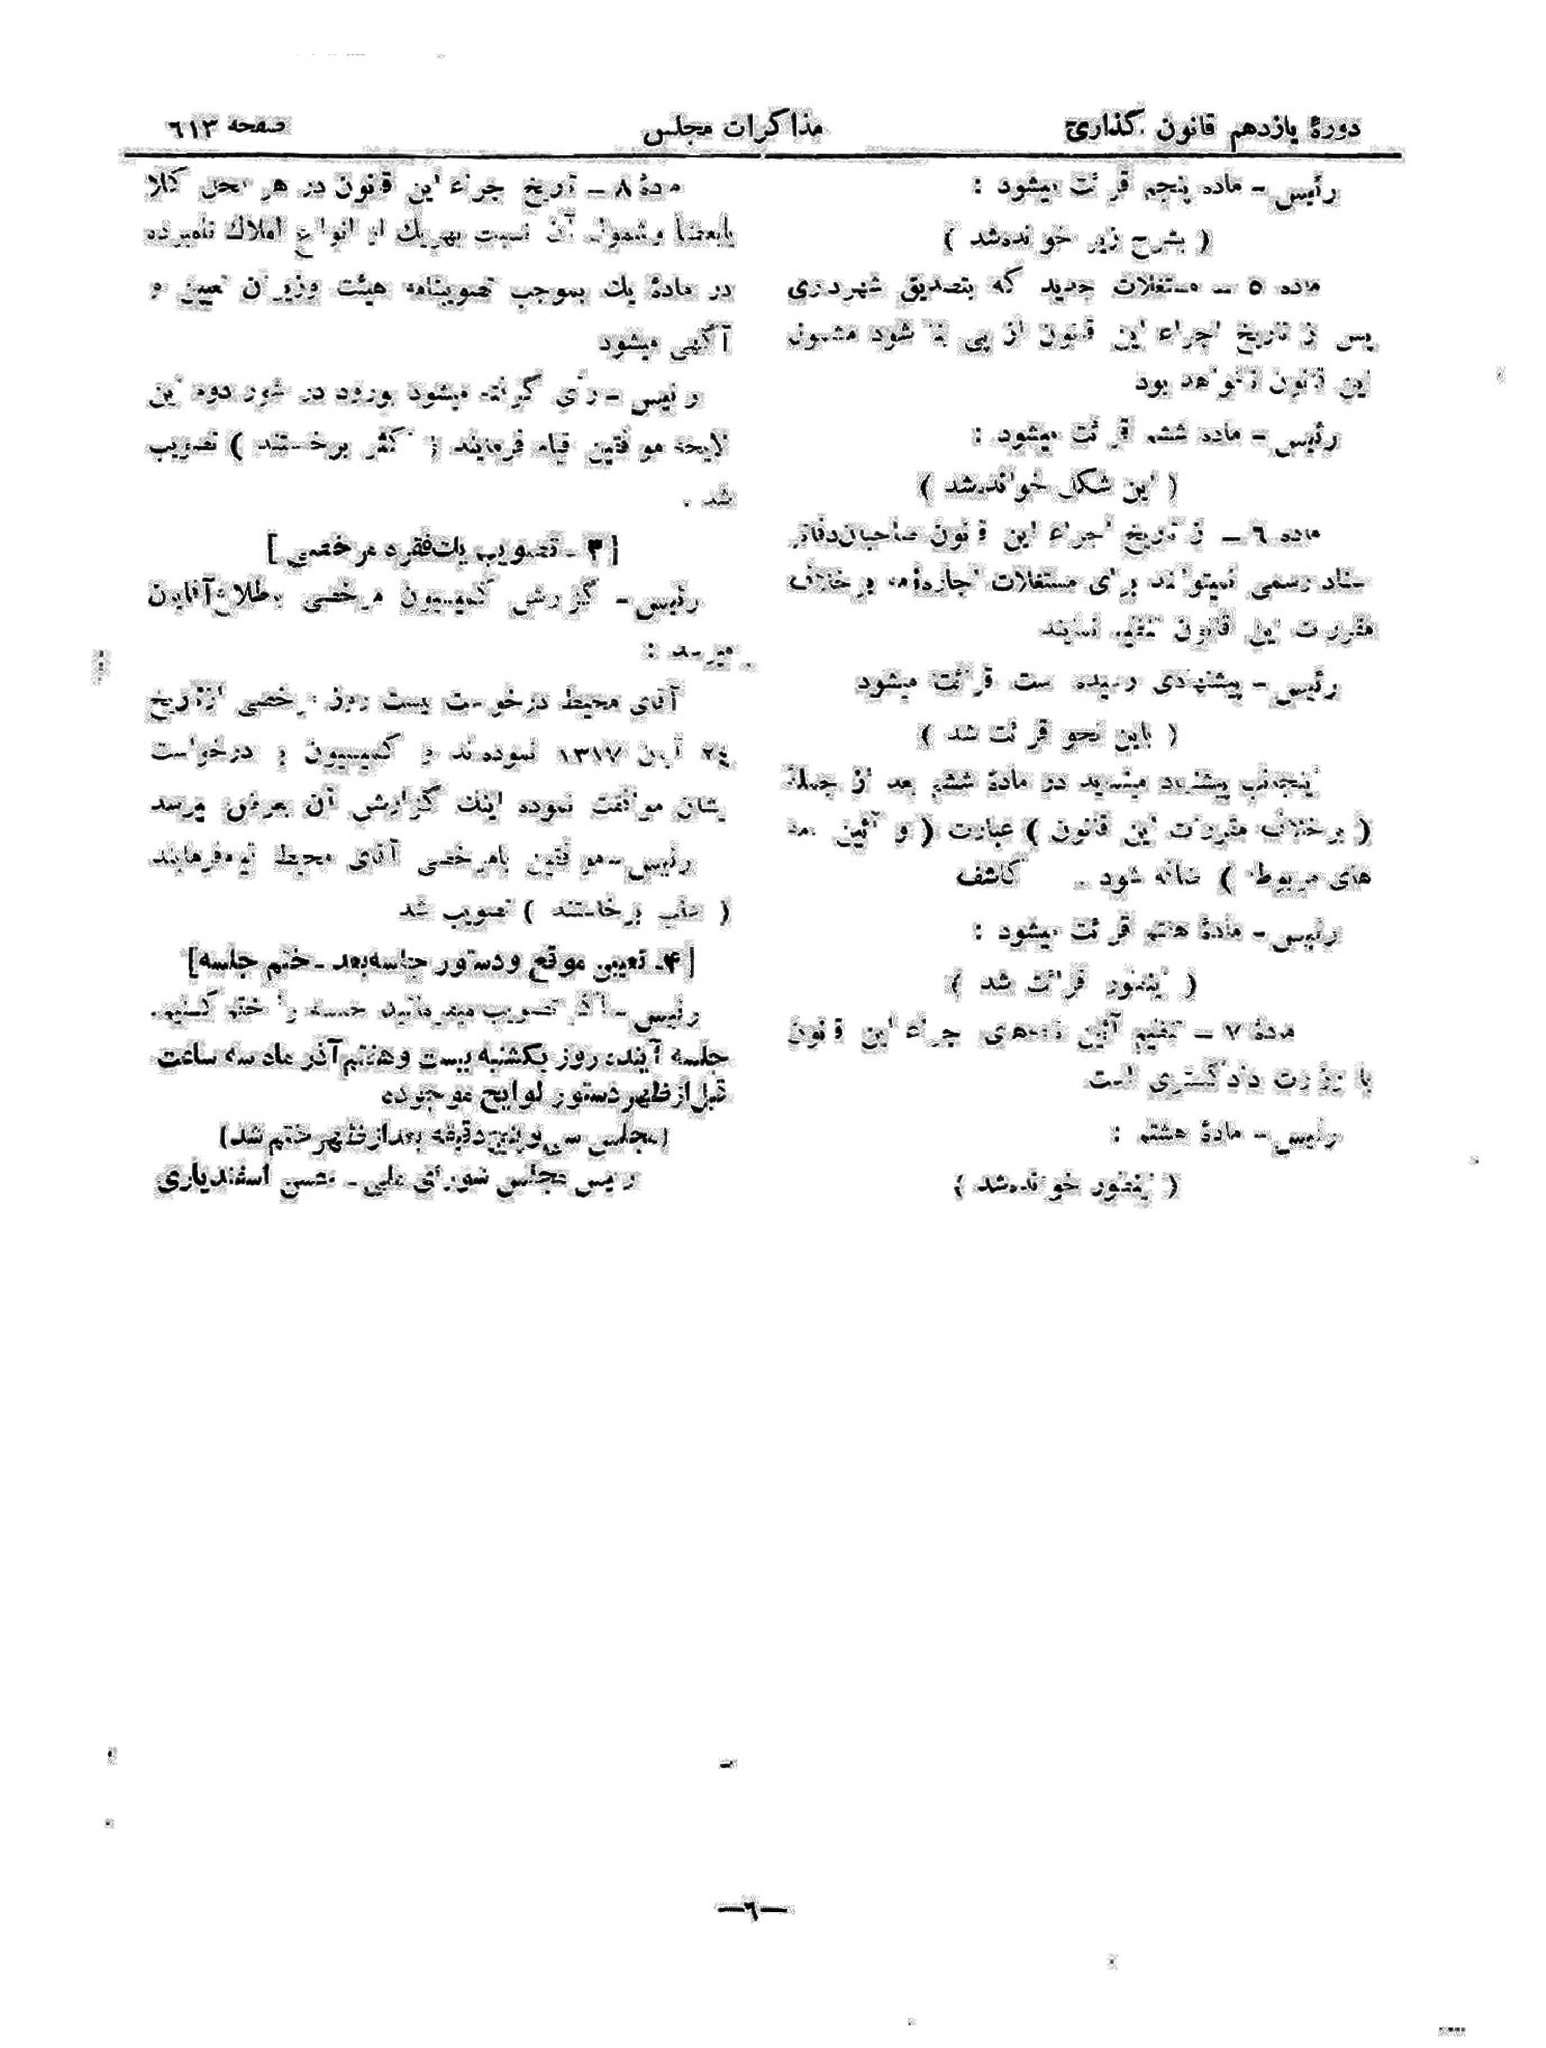 دورهٔ یازدهم قانون گذاری
مذاکرات مجلس
صفحه ٦١٣
رئیس - ماده پنجم قرائت میشود :
( بشرح زیر خوانده‌شد )
ماده ٥ - مستغلات جدید که بتصدیق شهرداری
پس از تاریخ اجراء این قانون از پی بنا شود مشمول
این قانون نخواهد بود
رئیس - ماده ششم قرائت میشود :
( این شکل خوانده‌شد )
ماده ٦ - از تاریخ اجراء این قانون صاحبان دفاتر
اسناد رسمی نمیتوانند برای مستغلات اجاره‌نامه برخلاف
مقررات این قانون تنظیم نمایند
رئیس - پیشنهادی رسیده است قرائت میشود
( باین نحو قرائت شد )
اینجانب پیشنهاد مینماید در مادهٔ ششم بعد از جملهٔ
( برخلاف مقررات این قانون ) عبارت ( و آئین نامه
های مربوطه ) اضافه شود - کاشف
رئیس - مادهٔ هفتم قرائت میشود :
( اینطور قرائت شد )
مادهٔ ٧ - تنظیم آئین نامه‌های اجراء این قانون
با وزارت دادگستری است
رئیس - مادهٔ هشتم :
( اینطور خوانده‌شد )
مادهٔ ٨ - تاریخ اجراء این قانون در هر محل کلا
یا بعضا و شمول آن نسبت بهریك از انواع املاك نامبرده
در مادهٔ یك بموجب تصویبنامه هیئت وزیران تعیین و
آگهی میشود
رئیس - رأی گرفته میشود بورود در شور دوم این
لایحه موافقین قیام فرمایند ( اکثر برخاستند ) تصویب
شد .
[ ٣ - تصویب یك فقره مرخصی ]
رئیس - گزارش کمیسیون مرخصی باطلاع آقایان
میرسد :
آقای محیط درخواست بیست روز مرخصی از تاریخ
٢٤ آبان ١٣١٧ نموده‌اند و کمیسیون با درخواست
ایشان موافقت نموده اینك گزارش آن بعرض میرسد
رئیس - موافقین با مرخصی آقای محیط قیام فرمایند
( اغلب برخاستند ) تصویب شد
[ ۴ - تعیین موقع و دستور جلسه بعد - ختم جلسه ]
رئیس - اگر تصویب میفرمائید جلسه را ختم کنیم .
جلسه آینده روز یکشنبه بیست و هفتم آذر ماه سه ساعت
قبل از ظهر دستور لوایح موجوده
( مجلس سی و پنج دقیقه بعد از ظهر ختم شد )
رئیس مجلس شورای ملی - محسن اسفندیاری
— ٦ —